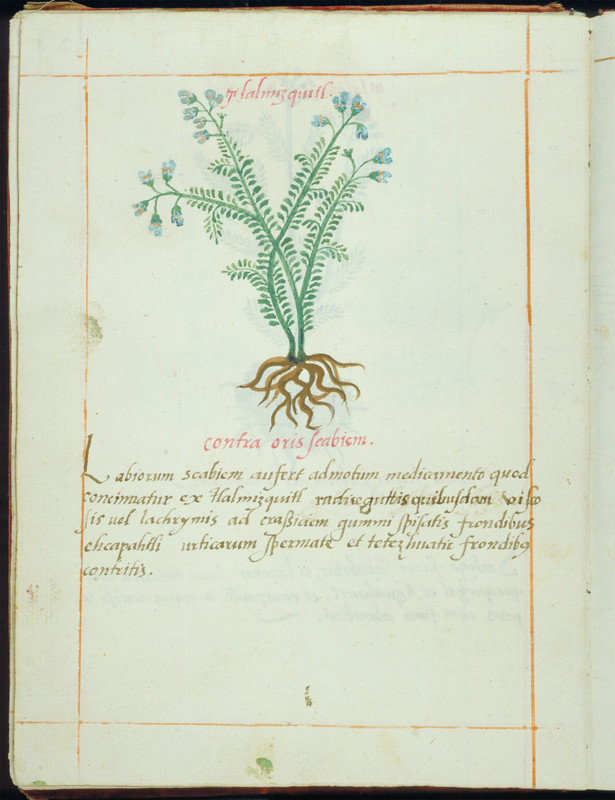 tlalmizquitl.
contra oris scabiem.
Labiorum scabiem aufert admotum medicamento quod
concinnatur ex tlalmizquitl radice guttis quibusdam visco
sis vel lachrymis ad crassiciem gummi spisatis frondibus
ehcapahtli urticarum spermate et tetezhuatic frondibus
contritis.